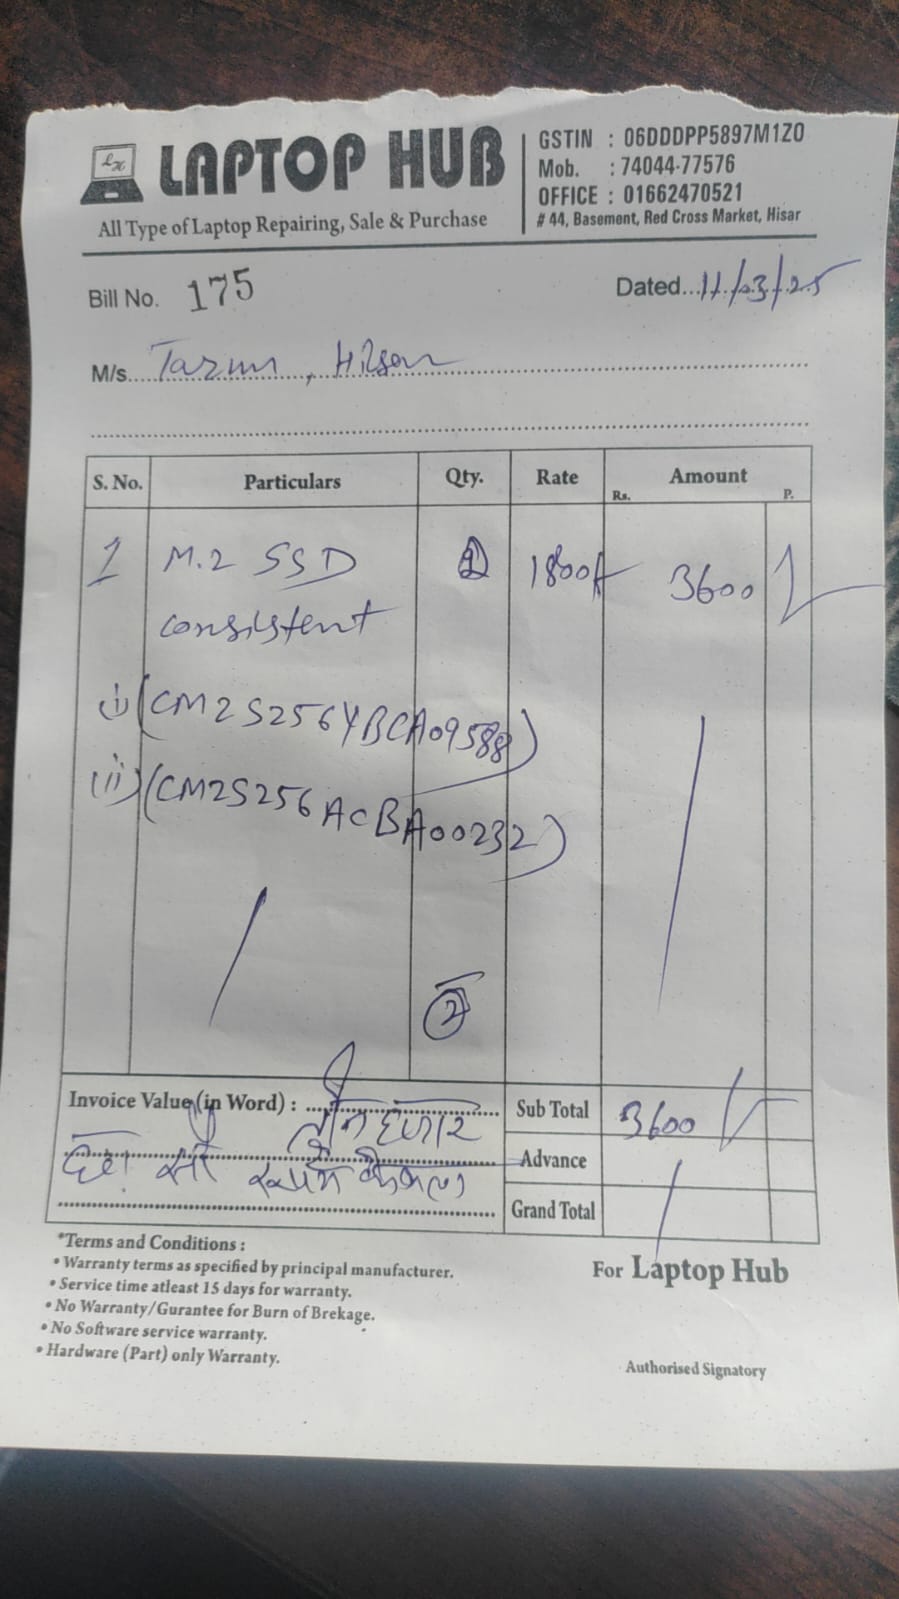 LH
LAPTOP HUB
All Type of Laptop Repairing, Sale & Purchase
GSTIN : 06DDDPP5897M1ZO
Mob. : 74044-77576
OFFICE : 01662470521
# 44, Basement, Red Cross Market, Hisar
Bill No. 175
Dated...11/03/25
M/s. Tarun, Hisar
S. No. Particulars Qty. Rate Amount
Rs. P.
1 M.2 SSD 2 1800/- 3600 /-
consistent
i) (CM2S256YBCA09588)
(ii) (CM2S256ACBA00232)
2
Invoice Value (in Word) : तीन हजार
छः सौ रुपये केवल
Sub Total 3600 /-
Advance
Grand Total
*Terms and Conditions :
• Warranty terms as specified by principal manufacturer.
• Service time atleast 15 days for warranty.
• No Warranty/Gurantee for Burn of Brekage.
• No Software service warranty.
• Hardware (Part) only Warranty.
For Laptop Hub
Authorised Signatory